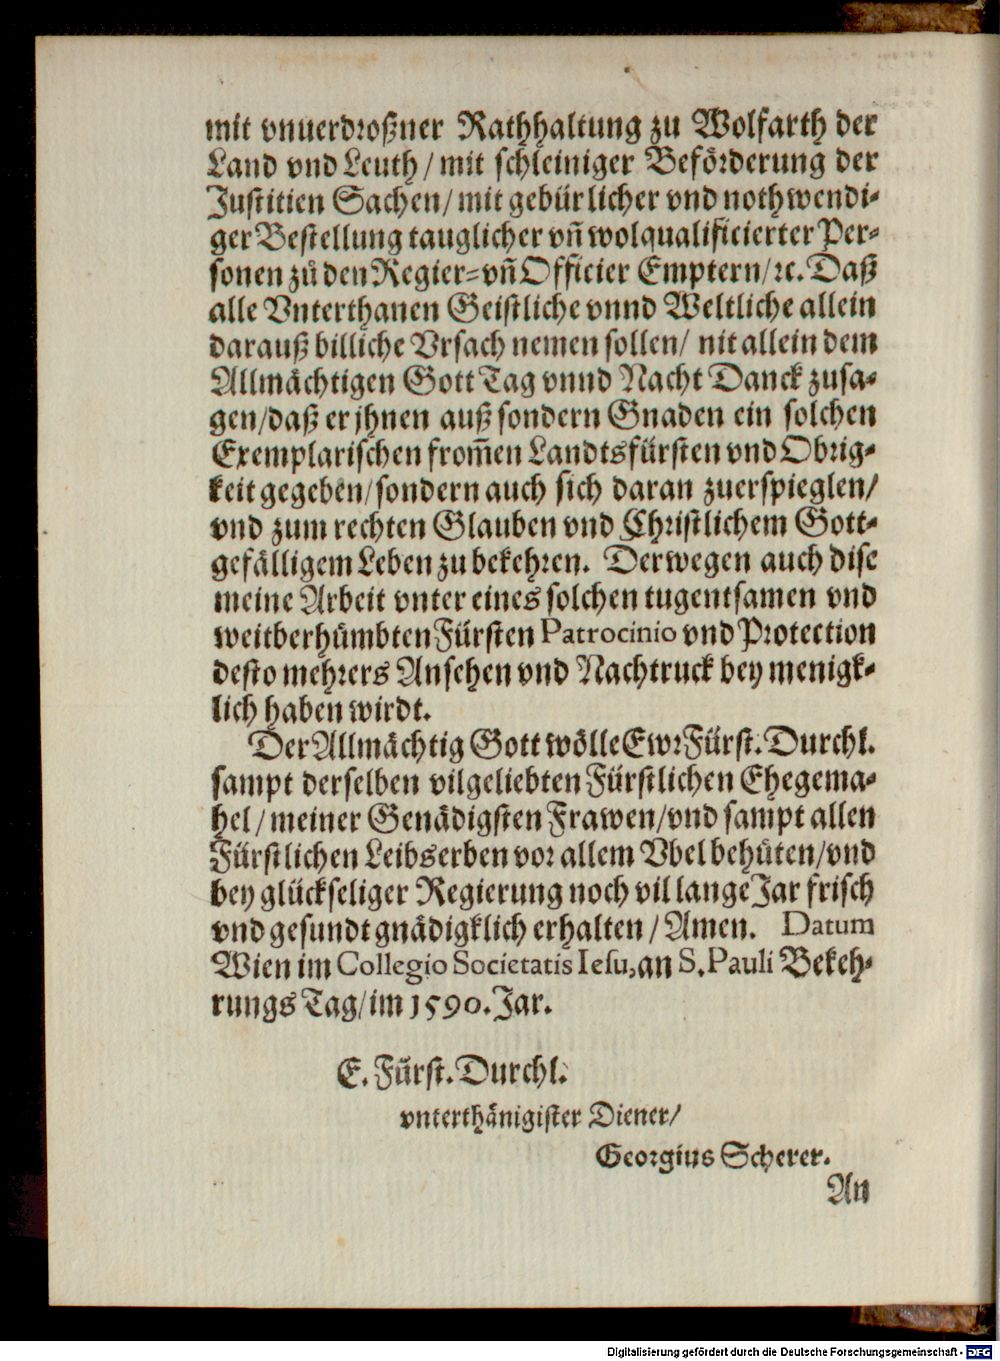 mit vnuerdroßner Rathhaltung zu Wolfarth der
Land vnd Leuth / mit schleiniger Befoͤrderung der
Justitien Sachen / mit gebuͤrlicher vnd nothwendi-
ger Bestellung tauglicher vñ wolqualificierter Per-
sonen zů den Regier- vñ Officier Emptern / ꝛc. Daß
alle Vnterthanen Geistliche vnnd Weltliche allein
darauß billiche Vrsach nemen sollen / nit allein dem
Allmaͤchtigen Gott Tag vnnd Nacht Danck zusa-
gen / daß er jhnen auß sondern Gnaden ein solchen
Exemplarischen from̃en Landtsfuͤrsten vnd Obrig-
keit gegeben / sondern auch sich daran zuerspieglen /
vnd zum rechten Glauben vnd Christlichem Gott-
gefaͤlligem Leben zu bekehren. Derwegen auch dise
meine Arbeit vnter eines solchen tugentsamen vnd
weitberhuͤmbten Fuͤrsten Patrocinio vnd Protection
desto mehrers Ansehen vnd Nachtruck bey menigk-
lich haben wirdt.
Der Allmaͤchtig Gott woͤlle Ewr Fuͤrst. Durchl.
sampt derselben vilgeliebten Fuͤrstlichen Ehegema-
hel / meiner Genaͤdigsten Frawen / vnd sampt allen
Fuͤrstlichen Leibserben vor allem Vbel behuͤten / vnd
bey gluͤckseliger Regierung noch vil lange Jar frisch
vnd gesundt gnaͤdigklich erhalten / Amen. Datum
Wien im Collegio Societatis Iesu, an S. Pauli Bekeh-
rungs Tag / im 1590. Jar.
E. Fuͤrst. Durchl.
vnterthaͤnigister Diener /
Georgius Scherer.
An
Digitalisierung gefördert durch die Deutsche Forschungsgemeinschaft - DFG